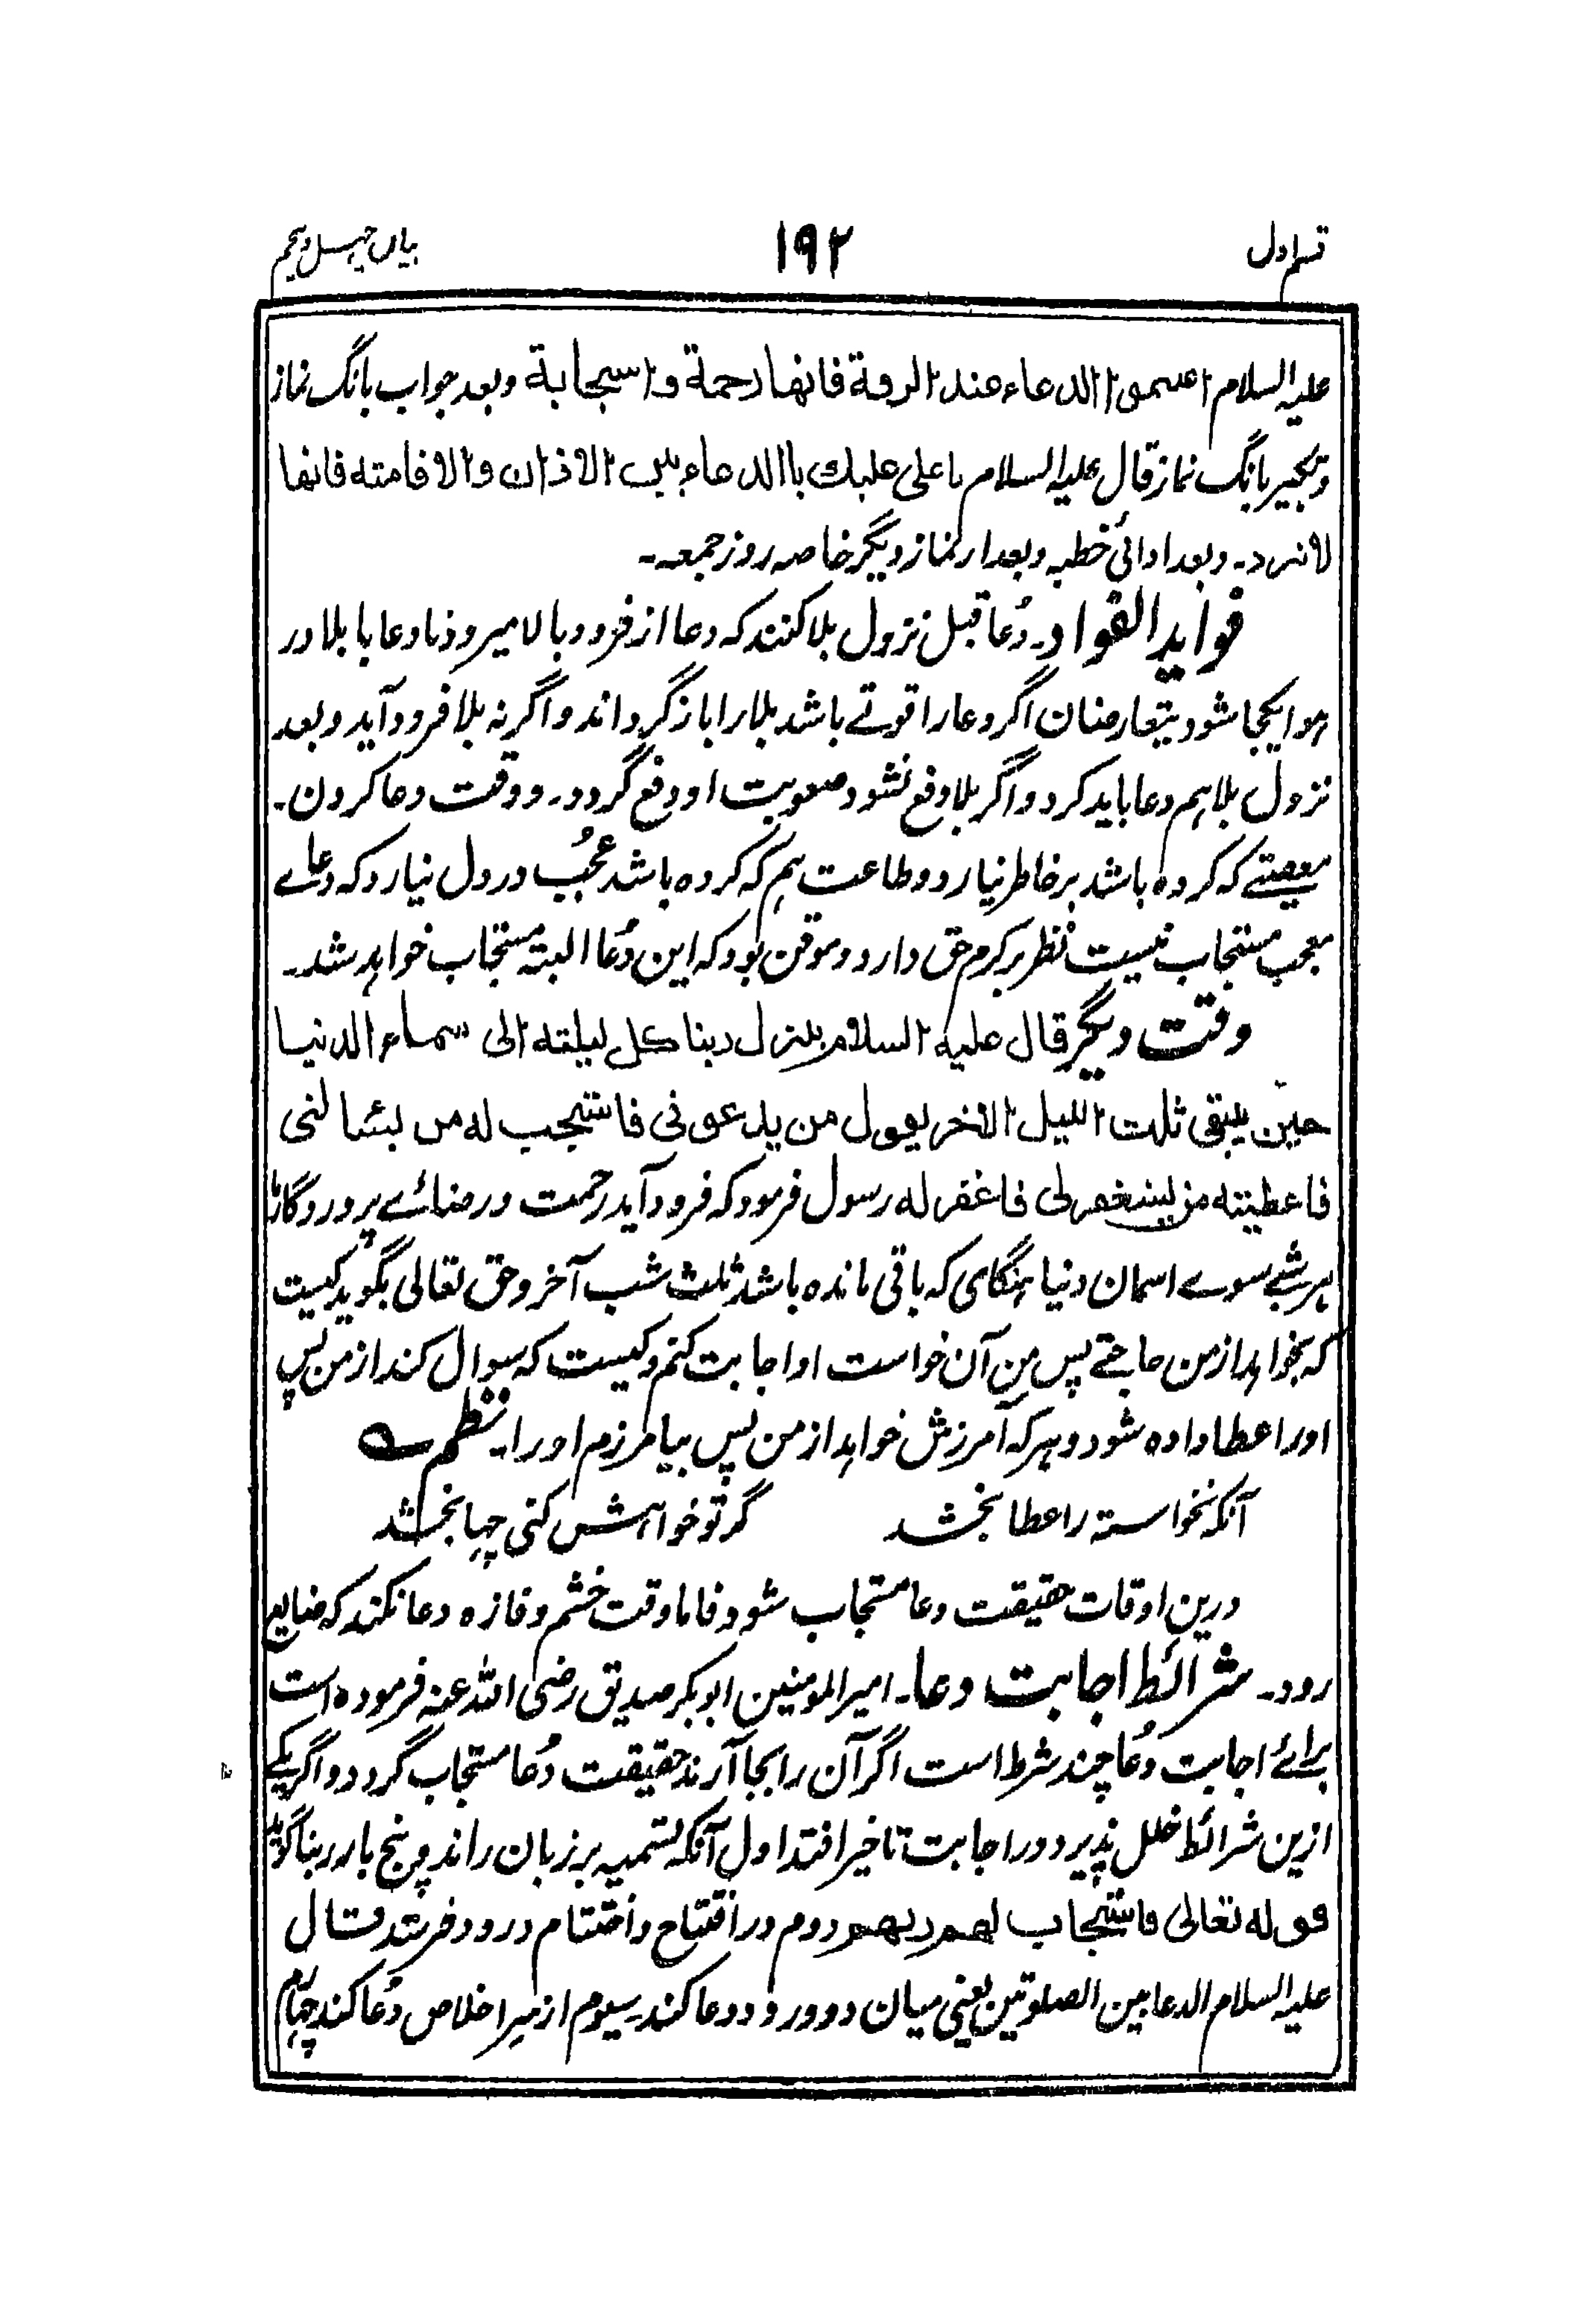 قسم اول ۱۹۲ بیان چهل و پنجم
علیه السلام اغتنموا الدعاء عند الرقة فانها رحمة و استجابة وبعد جواب بانگ نماز
وتکبیر بانگ نماز قال علیه السلام یا علی علیک باالدعاء بین الاذان والاقامته فانها
لا ترد۔ وبعد ادائی خطبه وبعد از نماز دیگر خاصه روز جمعه۔
فواید الفواد۔ دُعا قبل نزول بلا کنند که دعا از فرود ببالا میرود تا دعا با بلا در
هوا یکجا شود یتعارضان اگر دعا را قوتے باشد بلا را باز گرداند و اگر نه بلا فرود آید وبعد
نزول بلا هم دعا باید کرد و اگر بلا دفع نشود صعوبت او دفع گردد۔ ووقت دعا کردن۔
معصیتے که کرده باشد بر خاطر نیارد و طاعت هم که کرده باشد عُجُب در دل نیارد که دعاے
معجب مستجاب نیست نظر بر کرم حق دارد و موقن بود که این دُعا البته مستجاب خواهد شد۔
وقت دیگر قال علیه السلام ینزل ربنا کل لیلته الی سماء الدنیا
حین یبقی ثلث اللیل الاخر یقول من یدعونی فاستجب له من یسالنی
فاعطیته من یستغفرلی فاغفر له رسول فرمود که فرود آید رحمت و رضائے پروردگار ما
هر شبے سوے اسمان دنیا هنگامی که باقی مانده باشد ثلث شب آخر وحق تعالی بگوید کیست
که بخواهد از من حاجتے پس من آن خواست او اجابت کنم و کیست که سوال کند از من پس
اورا عطا داده شود و هر که آمرزش خواهد از من پس بیامرزم اورا۔ نظم
آنکه نخواسته را عطا بخشد گر تو خواهش کنی چها بخشد
درین اوقات حقیقت دعا مستجاب شود فاما وقت خشم و فازه دعا نکند که ضایع
رود۔ شرائط اجابت دعا۔ امیر المومنین ابوبکر صدیق رضی الله عنه فرموده است
برائے اجابت دُعا چند شرط است اگر آن را بجا آرند حقیقت دُعا مستجاب گردد و اگر یکے
ازین شرائط خلل پذیرد در اجابت تاخیر افتد اول آنکه تسمیه بر زبان راند و پنج بار ربنا گوید
قوله تعالی فاستجاب لهم ربهم دوم در افتتاح و اختتام درود فرستد قال
علیه السلام الدعا بین الصلوتین یعنی میان دو درود دعا کند سیوم از سر اخلاص دُعا کند چهارم